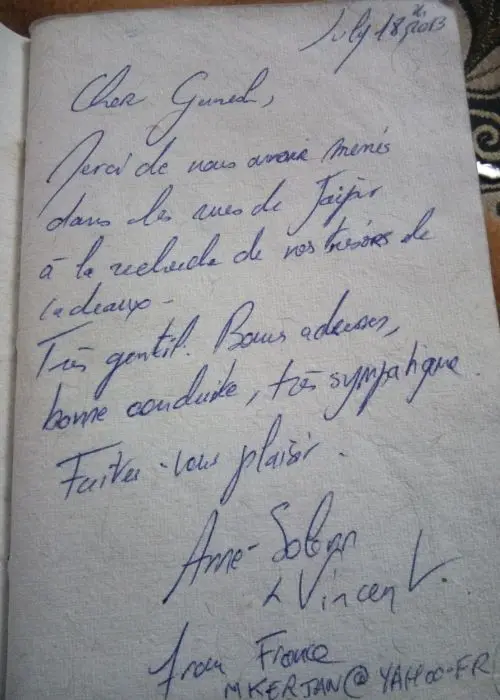 July 18th, 2013
Cher Ganesh,
Merci de nous avoir menés
dans les rues de Jaipur
à la recherche de nos trésors de
cadeaux -
Très gentil. Bonnes adresses,
bonne conduite, très sympatique.
Faites-vous plaisir.
Anne-Solenn
& Vincent.
from France
MKERJAN@YAHOO.FR